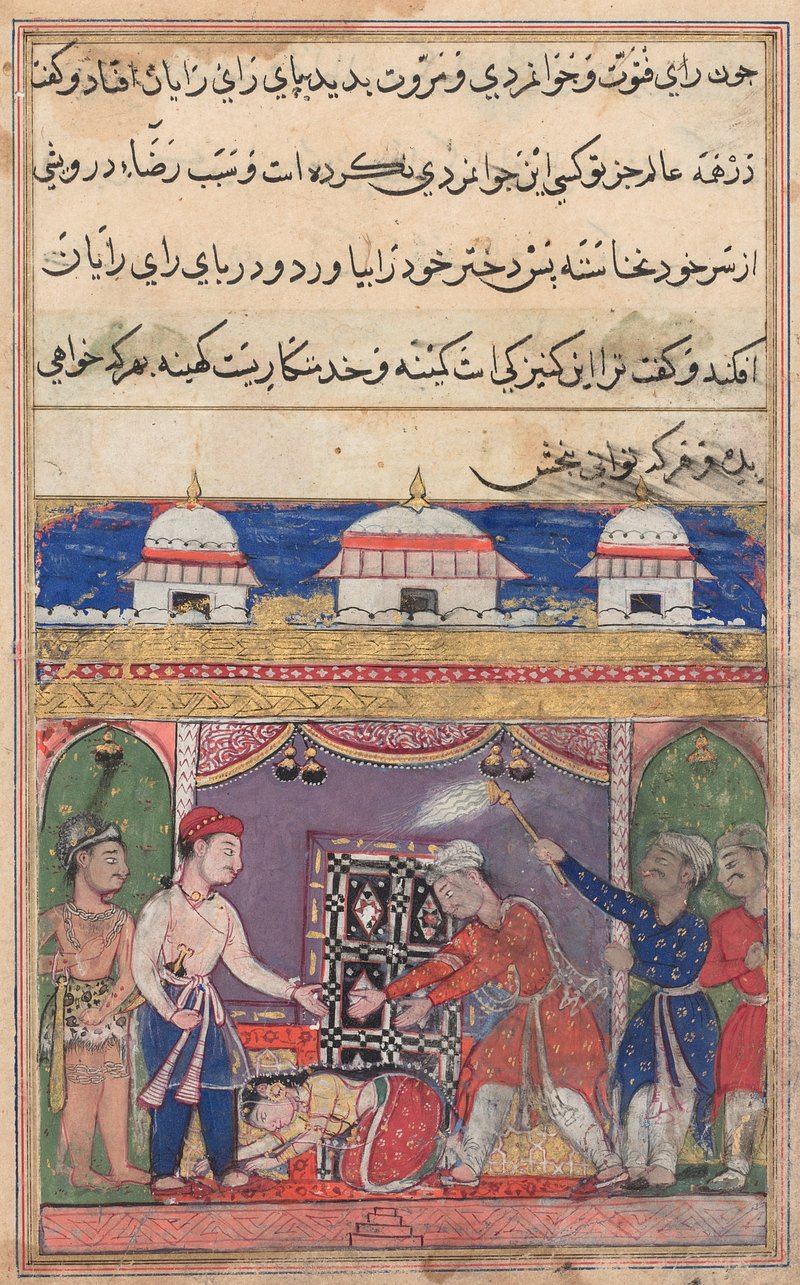 چون رای فتوّت و جوانمردي و مروّت بدید بپاي رَاي رَایان افتاد و کفت
دَرْهَمَه عالم جز تو کسي اینْ جوانمردي نکرده است وَ سَبَب رَضَاءِ درویشي
از سَر خود نخاسْتَه بَسْ دختر خود رَا بیاورد و در پاي راي رایان
افکند وَ کفت ترا این کنیزکي است کمیْنَه وَ خدمتکاریست کهینه بهر که خواهي
بده و هر که تواني ببخش